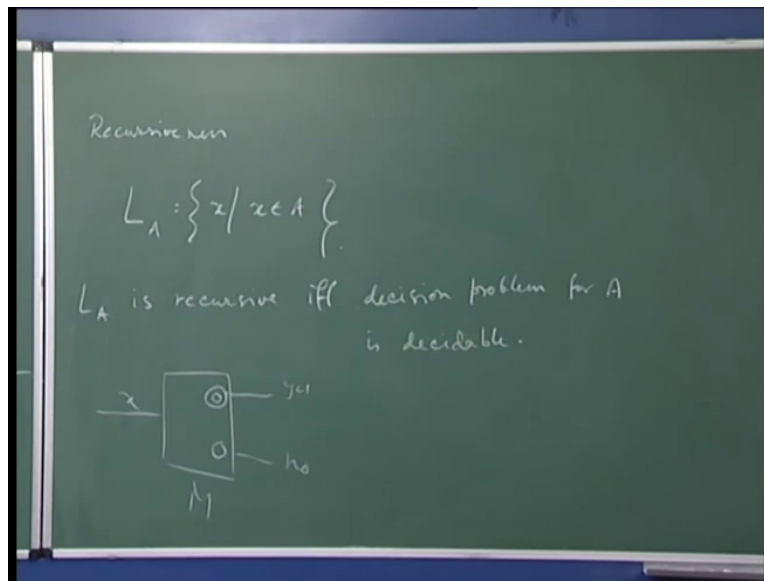 Recursiveness
L_A = { x / x ∈ A }.
L_A is recursive iff decision problem for A
is decidable.
x
yes
no
M